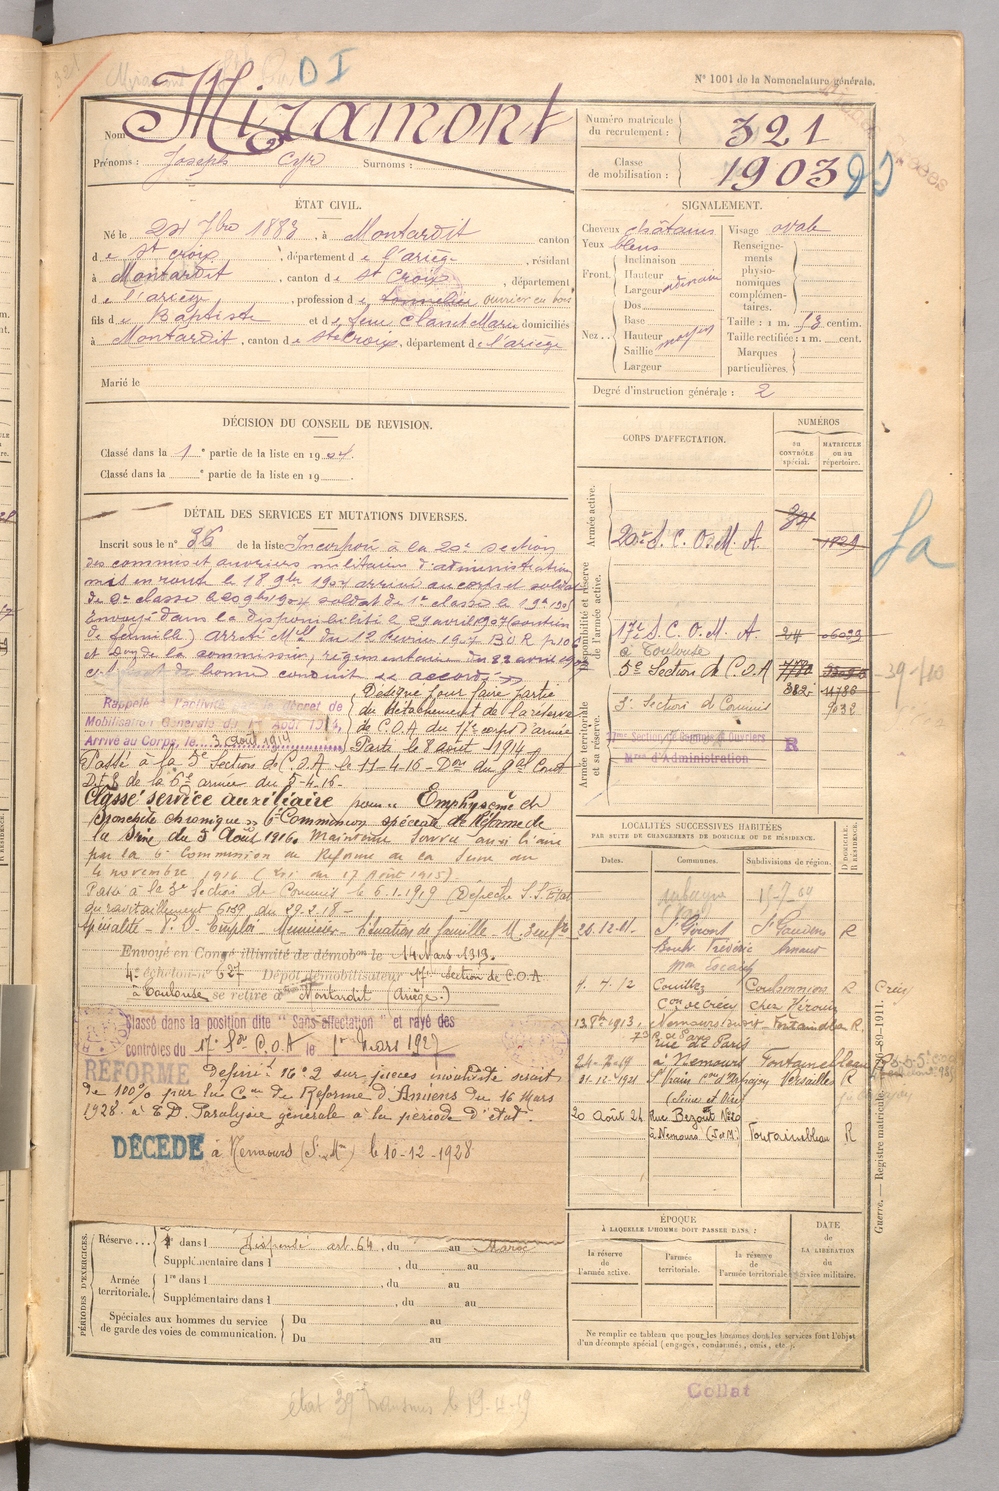 D I
N° 1001 de la Nomenclature générale.
Nom Miramont
Prénoms : Joseph Cyr Surnoms :
Numéro matricule du recrutement : 321
Classe de mobilisation : 1903
ÉTAT CIVIL.
Né le 7bre 1883, à Montardit canton
de St croix, département de l'ariège, résidant
à Montardit, canton de St Croix, département
de l'ariège, profession de tonnelier ouvrier en bois
fils de Baptiste et de feue Claret Marie domiciliés
à Montardit, canton de Ste Croix, département de l'ariège
Marié le
SIGNALEMENT.
Cheveux châtains Visage ovale
Yeux bleus
Front. Inclinaison
Hauteur
Largeur
Nez. Dos
Base
Hauteur moyen
Saillie
Largeur
Renseignements physionomiques complémentaires.
Taille : 1 m. 53 centim.
Taille rectifiée : 1 m. cent.
Marques particulières.
Degré d'instruction générale : 2
DÉCISION DU CONSEIL DE REVISION.
Classé dans la 1e partie de la liste en 1904.
Classé dans la e partie de la liste en 19 .
CORPS D'AFFECTATION.
NUMÉROS
au CONTRÔLE spécial.
MATRICULE ou au répertoire.
Armée active.
20e S. C. O. M. A. 1829
Disponibilité et réserve de l'armée active.
17e S. C. O. M. A. 24 06029
à Toulouse
5e Section de C.O.A
382 11786
3e Section de Commis 9032
Armée territoriale et sa réserve.
17me Section de Commis & Ouvriers R
Mres d'Administration
39-710
DÉTAIL DES SERVICES ET MUTATIONS DIVERSES.
Inscrit sous le n° 36 de la liste Incorporé à la 20e section
des commis et ouvriers militaires d'administration
mis en route le 18 9bre 1904 arrivé au corps et soldat
de 2e classe le 20 9bre 1904 soldat de 1e classe le
Envoyé dans la disponibilité le 29 avril 1907 (soutien
de famille) arrêté Mel du 12 février 1907 BO R p 106
et Don de la commission, régimentaire du 22 avril 1907
certificat de bonne conduite "accordé"
Rappelé à l'activité par le décret de
Mobilisation Générale du 1er Août 1914,
Arrivé au Corps, le 3 août 1914
Désigné pour faire partie
du détachement de la réserve
de C.O.A du 17e corps d'armée
Parti le 8 août 1914
Passé à la 5e Section de C.O.A le 11-4-16 - Don du gal Cont
D.E.S de la 6e armée du 5-4-16-
Classé service auxiliaire pour "Emphysème et
Bronchite chronique" 6e Commission spéciale de Réforme de
la Seine du 5 Août 1916. Maintenu Service auxiliaire
par la 6e Commission de Réforme de la Seine du
4 novembre 1916 (Loi du 17 Août 1915)
Passé à la 3e Section de Commis le 6.1.1919 (Dépêche S.S. Etat
du ravitaillement 6139 du 29-2-18-
Spécialité - P. O - Emploi - Menuisier - Situation de famille - M.
Envoyé en Congé illimité de démob on le 14 Mars 1919.
4e échelon n° 627 Dépôt démobilisateur 17e Section de C.O.A
à Toulouse se retire à Montardit (Ariège.)
Classé dans la position dite "Sans affectation" et rayé des
contrôles du 17e Son C.O.A le 1er Mars 1927
RÉFORME Définif n° 2 sur pièces invalidité
de 100% par la Con de Réforme d'Amiens du 16 Mars
1928. à T.D. Paralysie générale à la période d'état.
DÉCÉDÉ à Nemours (S. M) le 10-12-1928
LOCALITÉS SUCCESSIVES HABITÉES
PAR SUITE DE CHANGEMENTS DE DOMICILE OU DE RÉSIDENCE.
Dates. Communes. Subdivisions de région. D. DOMICILE. R. RÉSIDENCE.
aubagne
20.12.11. St Girons St Gaudens R
Boul Frédéric Arnaud
9. 7. 12 Couilly Coulommiers R Crécy
Con de Crécy chez Hérouin
13 8bre 1913. Nemours Fontainebleau R.
rue de Paris
24-7-19 à Nemours Fontainebleau R
31.12.1921 St Vrain Con d'Arpajon Versailles R
(Seine et Oise)
20 Août 24 Rue Bezout N° 20
à Nemours (S et M) Fontainebleau R
PÉRIODES D'EXERCICES.
Réserve dans l Dispensé art. 64, du au Maroc
Supplémentaire dans l , du au
Armée territoriale. 1re dans l , du au
Supplémentaire dans l , du au
Spéciales aux hommes du service de garde des voies de communication. Du au
Du au
ÉPOQUE À LAQUELLE L'HOMME DOIT PASSER DANS :
la réserve de l'armée active.
l'armée territoriale.
la réserve de l'armée territoriale.
DATE de LA LIBÉRATION du service militaire.
Ne remplir ce tableau que pour les hommes dont les services font l'objet
d'un décompte spécial (engagés, condamnés, omis, etc.).
Guerre. — Registre matricule
Collat
état 39 transmis le 19-4-19